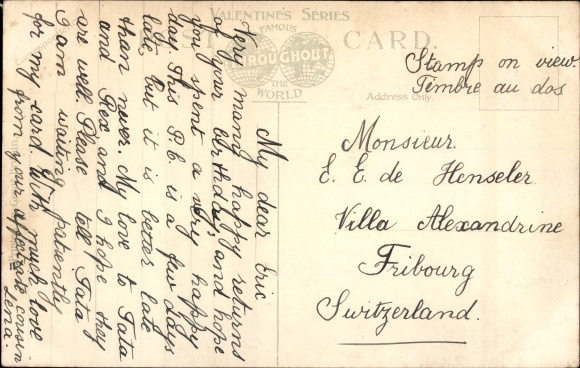 VALENTINE'S SERIES
FAMOUS
THROUGHOUT
THE
WORLD
CARD.
Address Only.
Stamp on view
Timbre au dos
My dear Eric
Very many happy returns
of your birthday, and hope
you spent a very happy
day. This P.C. is a few days
late, but it is better late
than never. My love to Tata
and Rex and I hope they
are well. Please tell Tata
I am waiting patiently
for my card. With much love
from your affectionate cousin
Lena.
Monsieur.
E. E. de Henseler.
Villa Alexandrine
Fribourg
Switzerland.